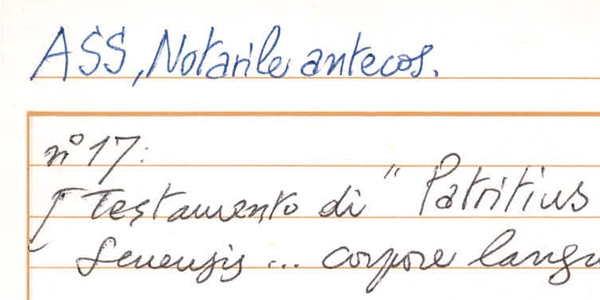 ASS, Notarile antecos.
n° 17:
Testamento di " Patritius
Senensis ... corpore langu